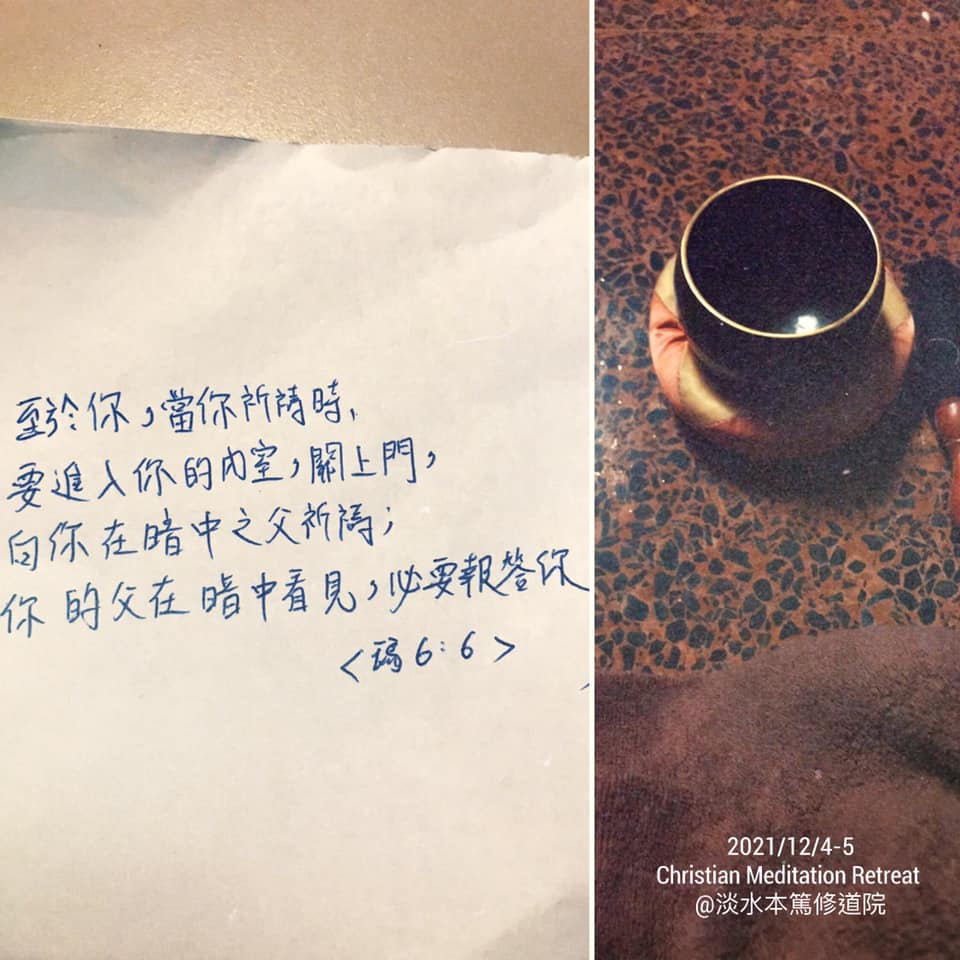 至於你，當你祈禱時，
要進入你的內室，關上門，
向你在暗中之父祈禱；
你的父在暗中看見，必要報答你
＜瑪6：6＞
2021/12/4-5
Christian Meditation Retreat
@淡水本篤修道院